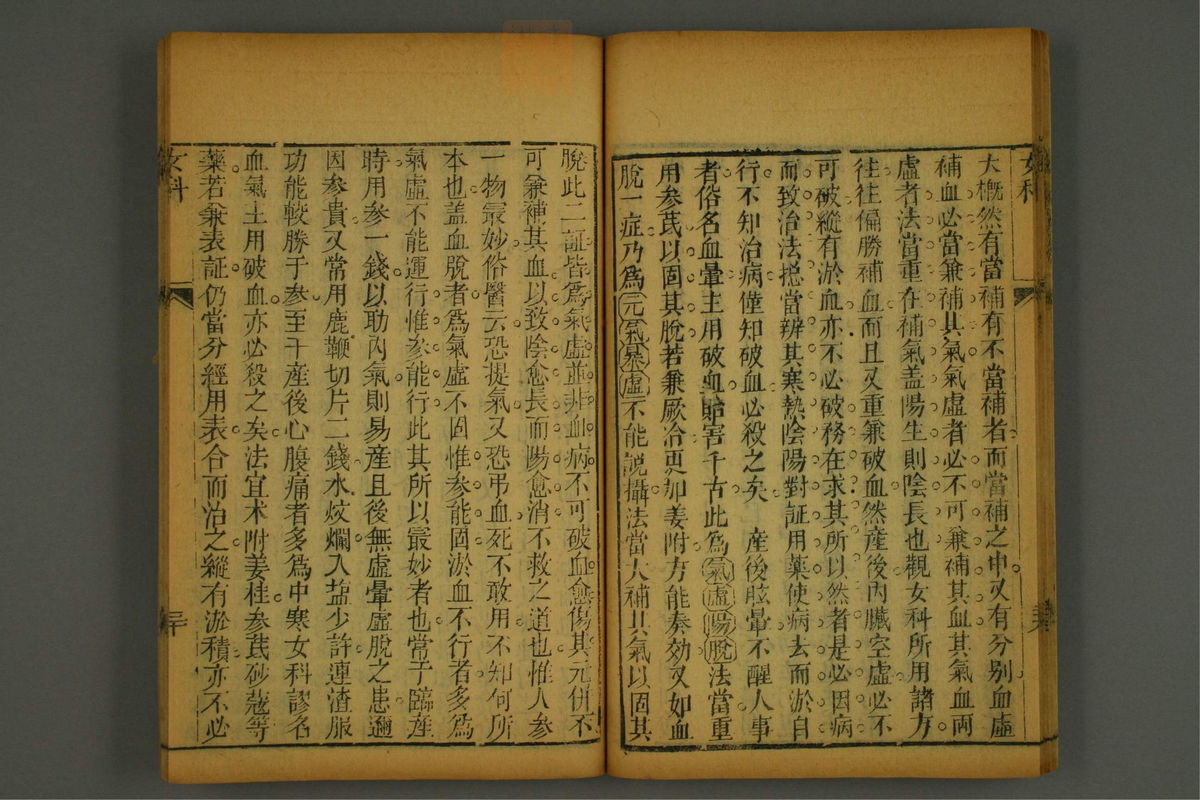 女科
大概然有當補有不當補者而當補之中又有分别血虛
補血必當兼補其氣氣虛者必不可兼補其血其氣血兩
虛者法當重在補氣盖陽生則陰長也觀女科所用諸方
往往偏勝補血而且又重兼破血然産後內臟空虛必不
可破縱有淤血亦不必破務在求其所以然者是必因病
而致治法揔當辨其寒熱陰陽對証用藥使病去而淤自
行不知治病僅知破血必殺之矣 産後眩暈不醒人事
者俗名血暈主用破血貽害千古此爲氣虛陽脫法當重
用参芪以固其脫若兼厥冷更加姜附方能奏効又如血
脫一症乃爲元氣暴虛不能統攝法當大補其氣以固其
脫此二証皆爲氣虛並非血病不可破血愈傷其元併不
可兼補其血以致陰愈長而陽愈消不救之道也惟人参
一物最妙俗醫云恐提氣又恐弔血死不敢用不知何所
本也盖血脫者爲氣虛不固惟参能固淤血不行者多爲
氣虛不能運行惟参能行此其所以最妙者也當于臨産
時用参一錢以助內氣則易産且後無虛暈虛脫之患邇
因参貴又常用鹿鞭切片二錢水炆爛入塩少許連渣服
功能較勝于参至于産後心腹痛者多爲中寒女科謬名
血氣主用破血亦必殺之矣法宜术附姜桂参芪砂蔻等
藥若兼表証仍當分經用表合而治之縱有淤積亦不必
女科